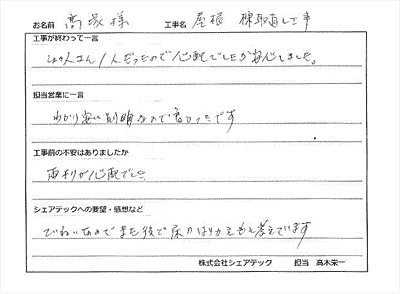 お名前 高塚 様 工事名 屋根 棟取直し工事
工事が終わって一言
しょく人さん1人だったので心配でしたが安心しました。
担当営業に一言
わかり安い説明なので良かったです
工事前の不安はありましたか
雨もりが心配でした
シェアテックへの要望・感想など
ていねいなので また後で床のはりかえも考えています
株式会社シェアテック 担当 高木栄一